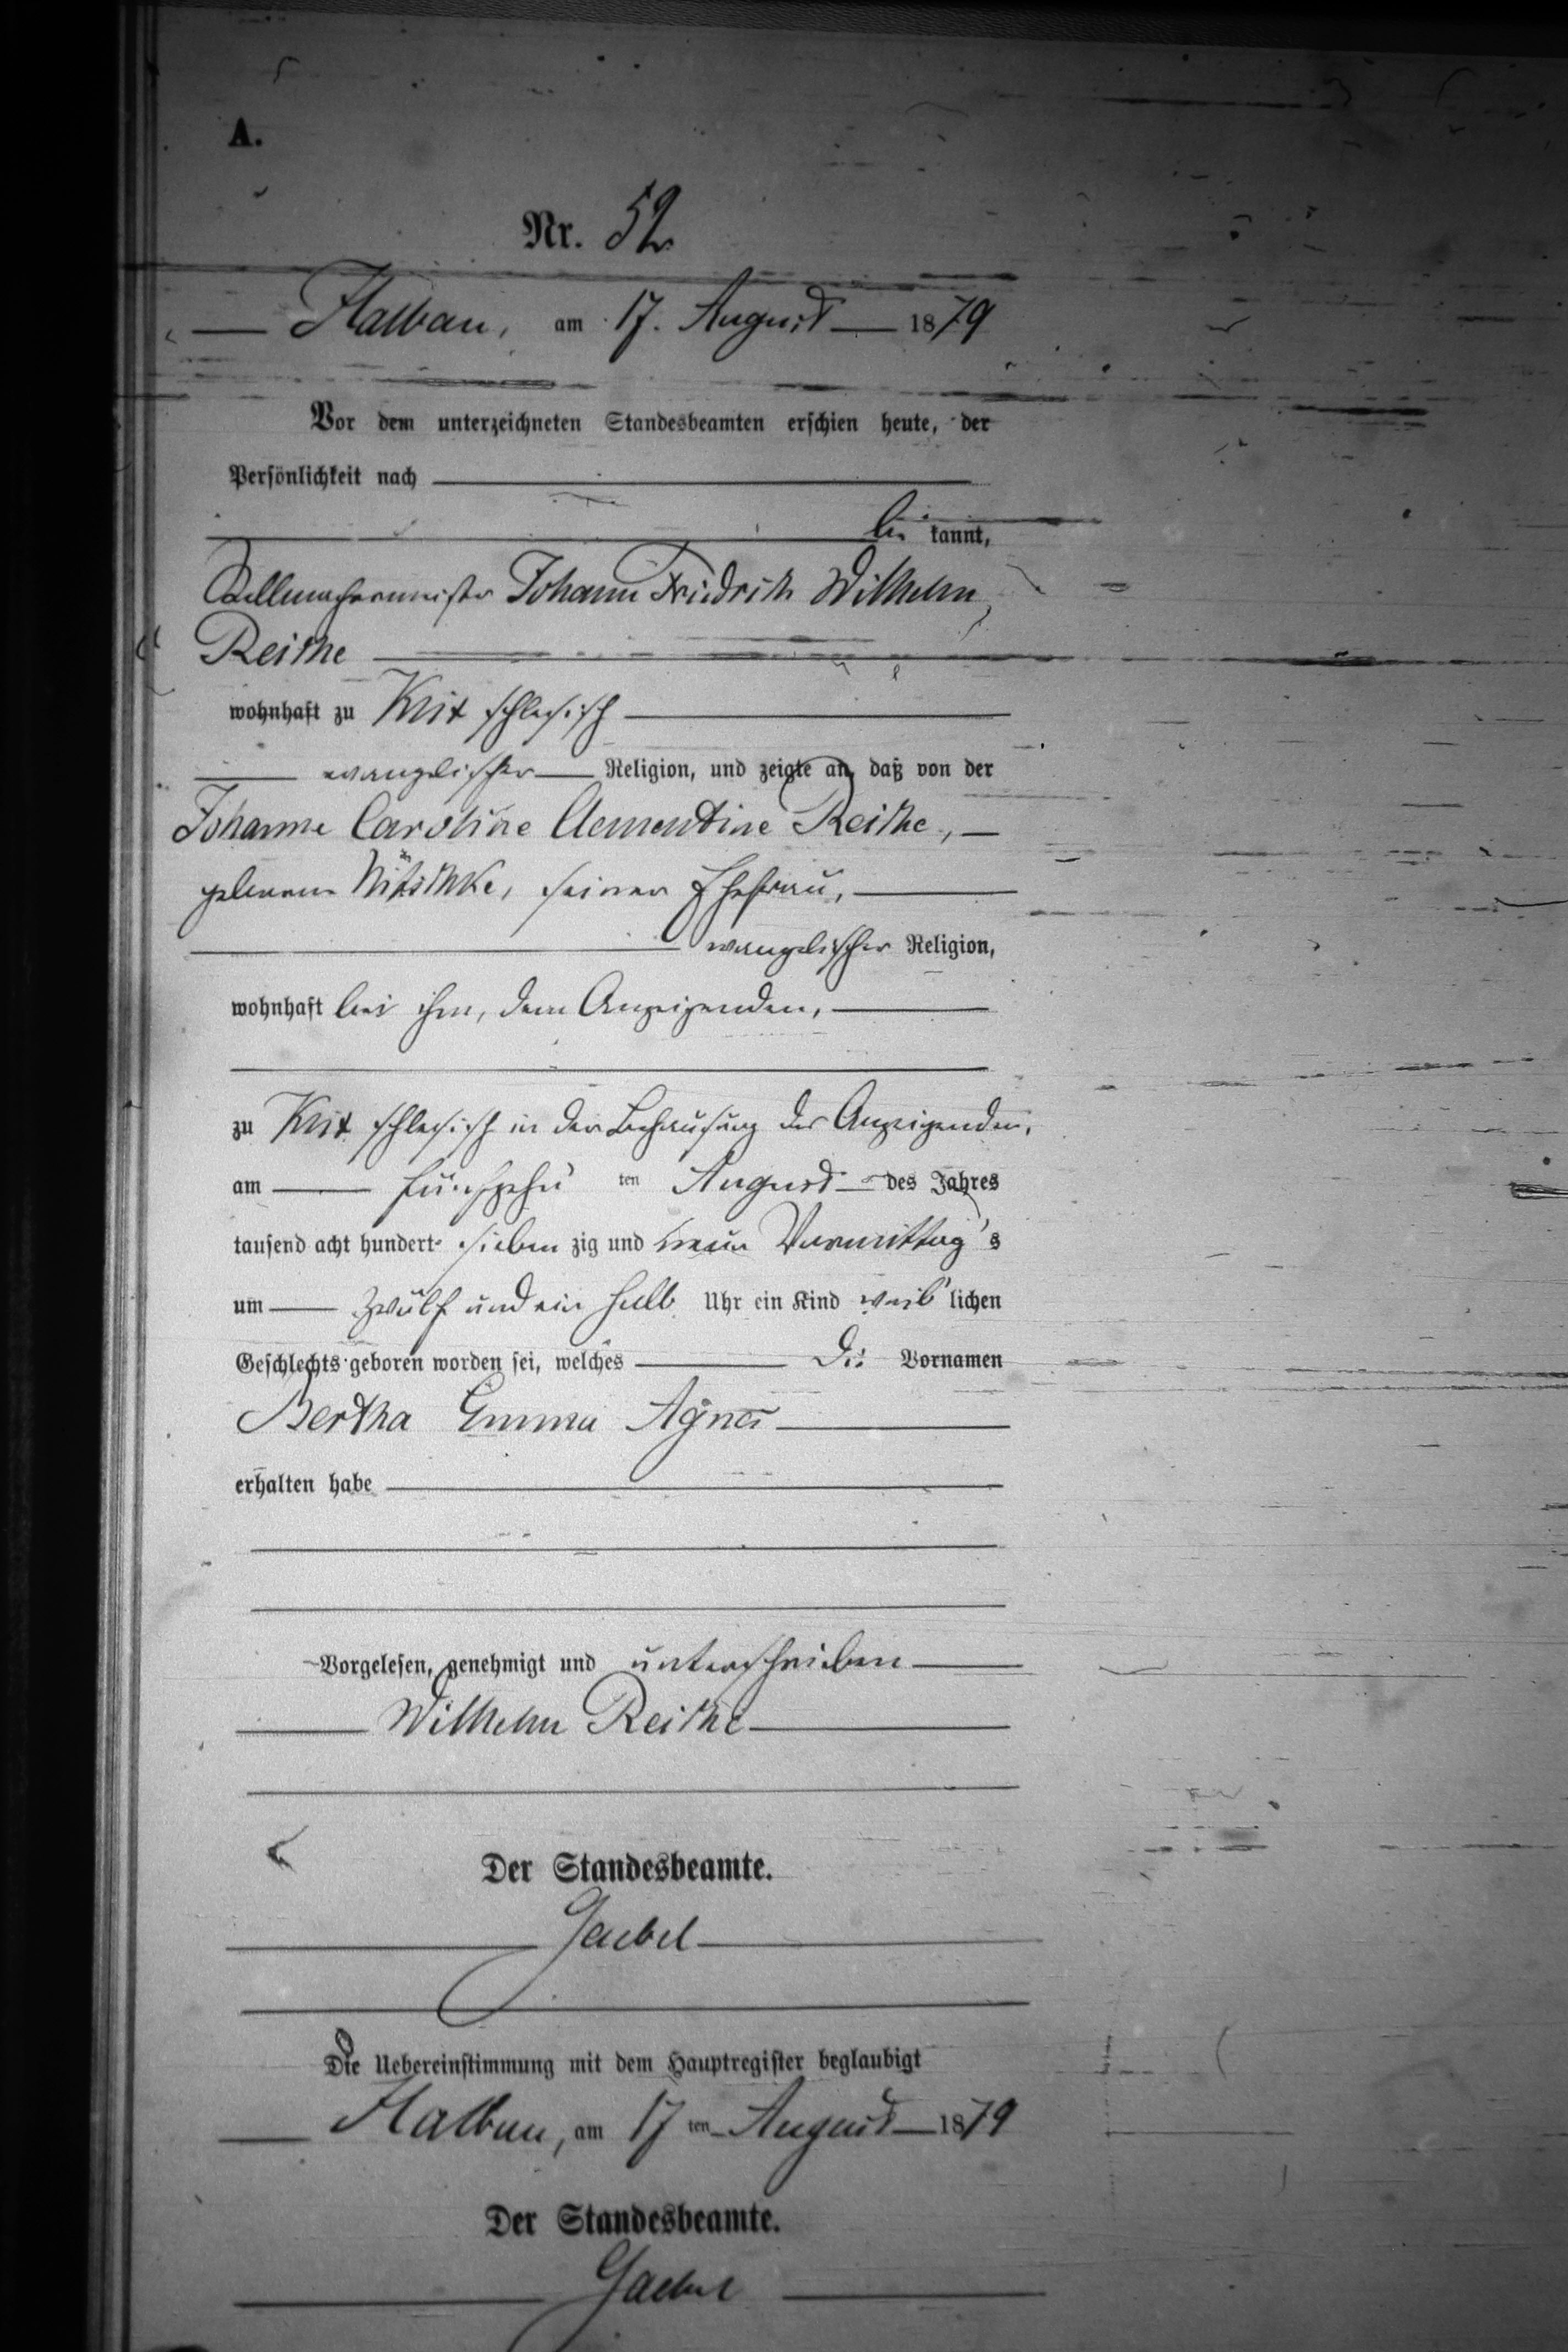 A.
Nr. 52
Halbau, am 17. August 1879
Vor dem unterzeichneten Standesbeamten erschien heute, der
Persönlichkeit nach
be kannt,
Stellmachermeister Johann Friedrich Wilhelm
Reiche
wohnhaft zu Klix schlesisch
evangelischer Religion, und zeigte an, daß von der
Johanne Caroline Clementine Reiche,
geborene seiner Ehefrau,
evangelischer Religion,
wohnhaft bei ihm, dem Anzeigenden,
zu Klix schlesisch in der Behausung des Anzeigenden,
am fünfzehn ten August des Jahres
tausend acht hundert sieben zig und neun Vormittag s
um zwölf und ein halb Uhr ein Kind weib lichen
Geschlechts geboren worden sei, welches die Vornamen
Bertha Emma Agnes
erhalten habe
Vorgelesen, genehmigt und unterschrieben
Wilhelm Reiche
Der Standesbeamte.
Gaebel
Die Uebereinstimmung mit dem Hauptregister beglaubigt
Halbau, am 17 ten August 1879
Der Standesbeamte.
Gaebel